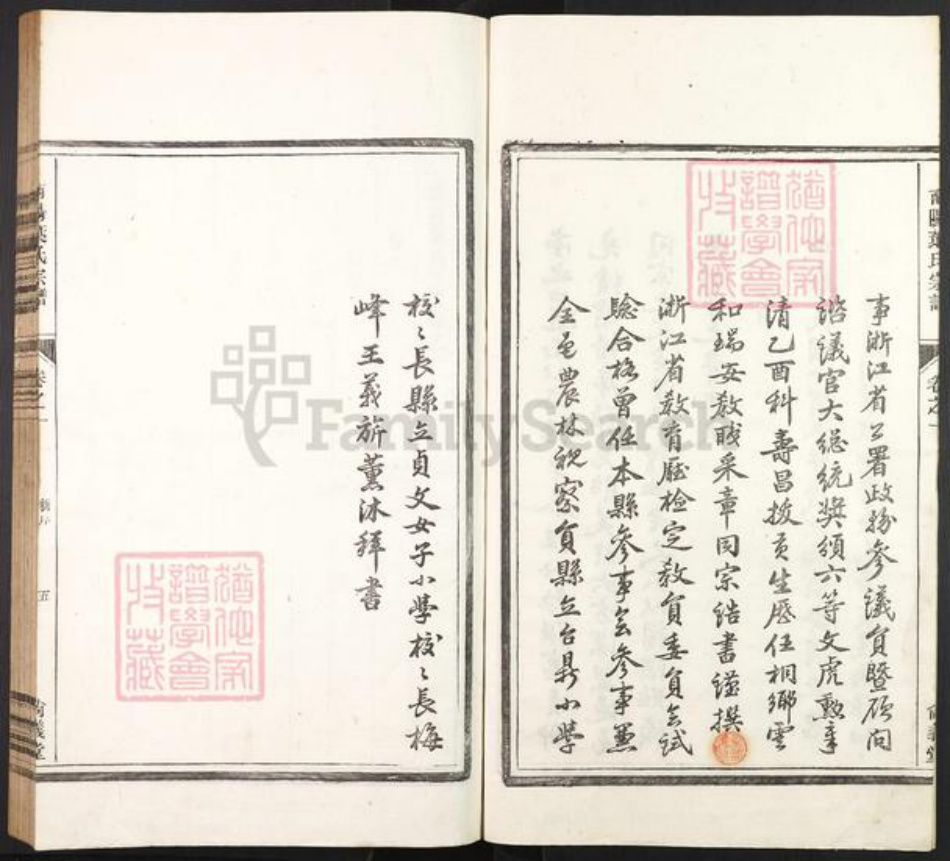 事浙江省公署政務參議員暨顧問
諮議官大總統獎頒六等文虎勲章
清乙酉科壽昌拔貢生歷任桐鄉雲
和瑞安教職采章同宗誥書謹撰
浙江省教育廳檢定教員委員會試
驗合格曾任本縣參事會參事兼
全邑農林視察員縣立台鼎小學
校〻長縣立貞文女子小學校〻長梅
峰王義旂薰沐拜書
南陽葉氏宗譜
卷之一
南陽葉氏宗譜
卷之一
五
尚義堂
尚義堂
譜學會
收藏
譜學會
收藏
FamilySearch